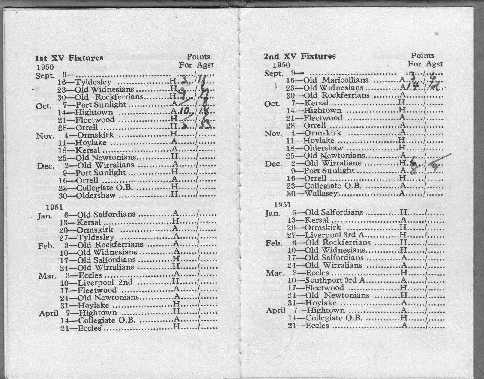 1st XV Fixtures
Points
1950
For Agst
Sept. 9—
16—Tyldesley H. 3
23—Old Wirdnesians H.
30—Old Rockferrians H.
Oct. 7—Port Sunlight A.
14—Hightown A. 10
21—Fleetwood H.
28—Orrell H.
Nov. 4—Ormskirk H.
11—Hoylake A.
18—Kersal H.
25—Old Newtonians H.
Dec. 2—Old Wirralians A.
9—Port Sunlight H.
16—Orrell A.
23—Collegiate O.B. H.
30—Oldershaw H.
1951
Jan. 6—Old Salfordians A.
13—Kersal H.
20—Ormskirk A.
27—Tyldesley A.
Feb. 3—Old Rockferrians A.
10—Old Widnesians A.
17—Old Salfordians H.
24—Old Wirralians H.
Mar. 3—Eccles A.
10—Liverpool 2nd H.
17—Fleetwood A.
24—Old Newtonians A.
31—Hoylake H.
April 7—Hightown H.
14—Collegiate O.B. A.
21—Eccles H.
2nd XV Fixtures
Points
1950
For Agst
Sept. 9—
16—Old Maricollians A. 3
23—Old Widnesians A. 14
30—Old Rockferrians A.
Oct. 7—Kersal H.
14—Hightown H.
21—Fleetwood A.
28—Orrell A.
Nov. 4—Ormskirk A.
11—Hoylake H.
18—Oldershaw H.
25—Old Newtonians A.
Dec. 2—Old Wirralians H.
9—Port Sunlight A.
16—Orrell H.
23—Collegiate O.B. A.
30—Wallasey A.
1951
Jan. 6—Old Salfordians H.
13—Kersal A.
20—Ormskirk H.
27—Liverpool 3rd A. H.
Feb. 3—Old Rockferrians H.
10—Old Widnesians H.
17—Old Salfordians A.
24—Old Wirralians A.
Mar. 3—Eccles H.
10—Southport 3rd A. A.
17—Fleetwood H.
24—Old Newtonians H.
31—Hoylake A.
April 7—Hightown A.
14—Collegiate O.B. H.
21—Eccles A.